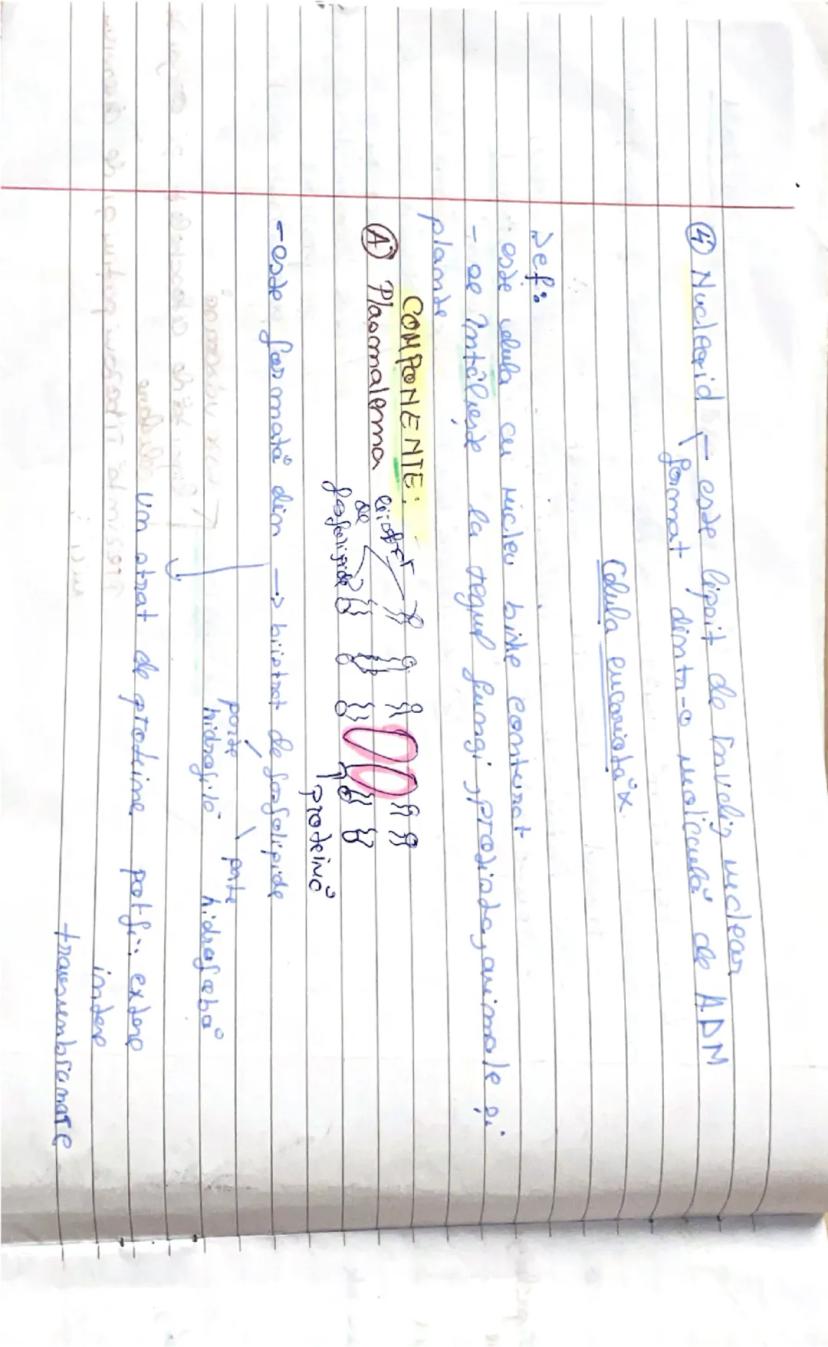 ④ Nucleoid - este lipsit de înveliș nuclear
format dintr-o moleculă de ADN
Celula eucariotă
Def:
- este celula cu nucleu bine conturat
- se întâlnește la regnul fungi, protiste, animale și
plante
COMPONENTE:
Ⓐ Plasmalema
bistrat
de
fosfolipide
proteină
- este formată din → bistrat de fosfolipide
parte
hidrofilă
parte
hidrofobă
un strat de proteine pot fi: externe
interne
transmembranare